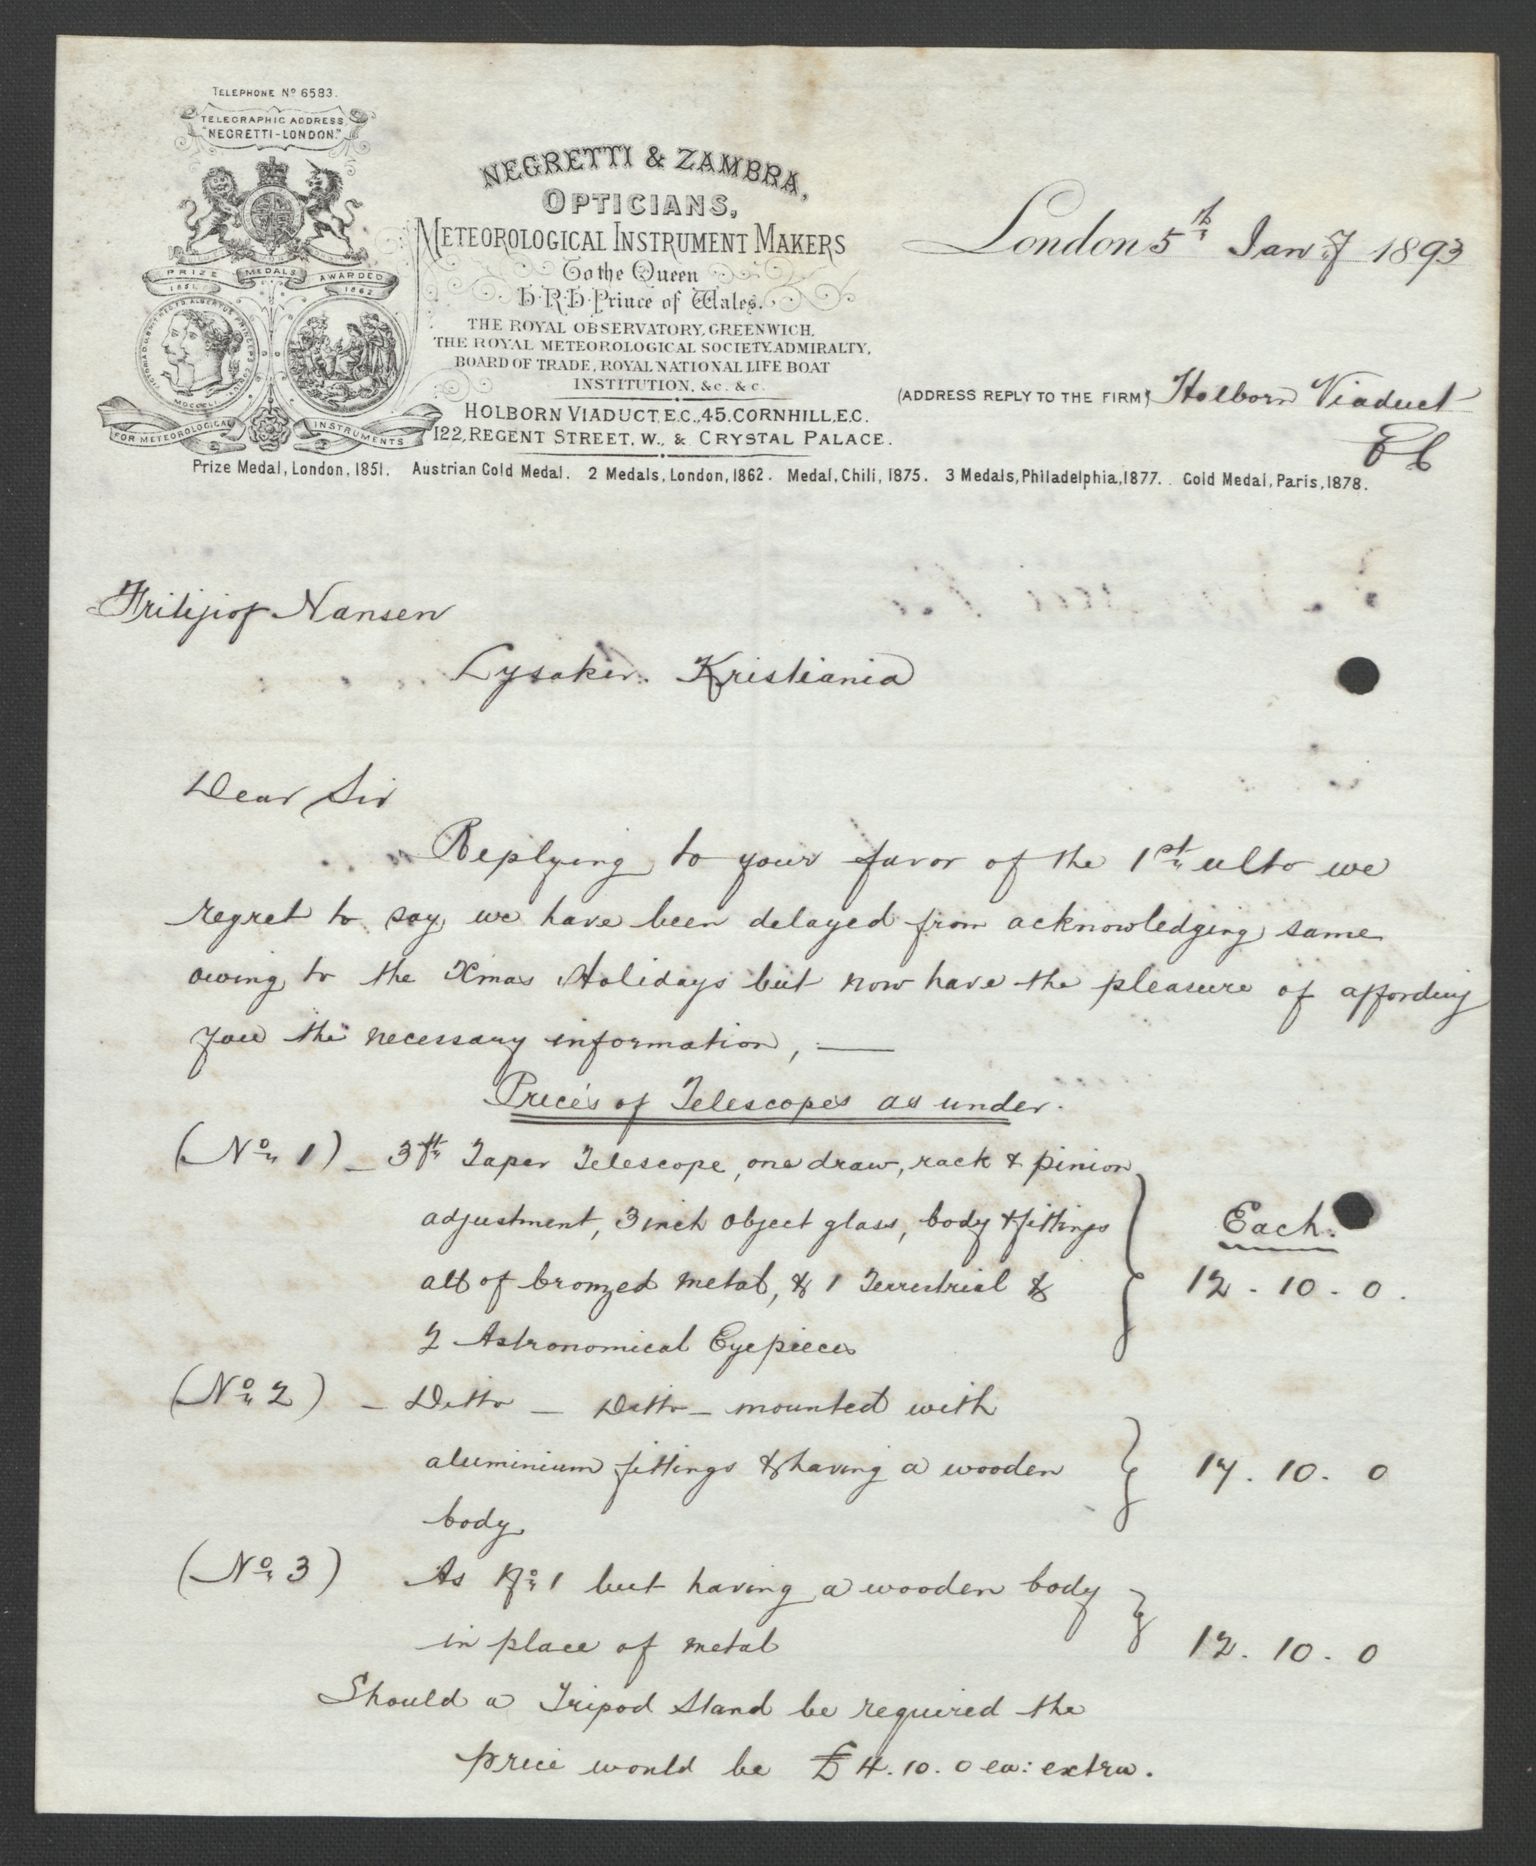 TELEPHONE Nº 6583.
TELEGRAPHIC ADDRESS
"NEGRETTI-LONDON."
PRIZE MEDALS AWARDED
1851 1862
FOR METEOROLOGICAL INSTRUMENTS
NEGRETTI & ZAMBRA,
OPTICIANS,
METEOROLOGICAL INSTRUMENT MAKERS
To the Queen
H.R.H. Prince of Wales.
THE ROYAL OBSERVATORY, GREENWICH,
THE ROYAL METEOROLOGICAL SOCIETY, ADMIRALTY,
BOARD OF TRADE, ROYAL NATIONAL LIFE BOAT
INSTITUTION, &c. &c.
HOLBORN VIADUCT, E.C., 45, CORNHILL, E.C.
122, REGENT STREET, W., & CRYSTAL PALACE.
Prize Medal, London, 1851. Austrian Gold Medal. 2 Medals, London, 1862. Medal, Chili, 1875. 3 Medals, Philadelphia, 1877. Gold Medal, Paris, 1878.
London 5th Jany 1893
(ADDRESS REPLY TO THE FIRM) Holborn Viaduct
E C
Fritijiof Nansen
Lysaker. Kristiania
Dear Sir
Replying to your favor of the 1st ulto we
regret to say we have been delayed from acknowledging same
owing to the Xmas Holidays but now have the pleasure of affording
you the necessary information, —
Prices of Telescopes as under.
(No 1) – 3ft Taper Telescope, one draw, rack & pinion
adjustment, 3 inch object glass, body & fittings
all of bronzed metal, & 1 Terrestrial &
2 Astronomical Eyepieces
Each.
12 . 10 . 0 .
(No 2) – Ditto – Ditto – mounted with
aluminium fittings & having a wooden
body
17 . 10 . 0
(No 3) As No 1 but having a wooden body
in place of metal
12 . 10 . 0
Should a Tripod Stand be required the
price would be £4.10.0 ea: extra.